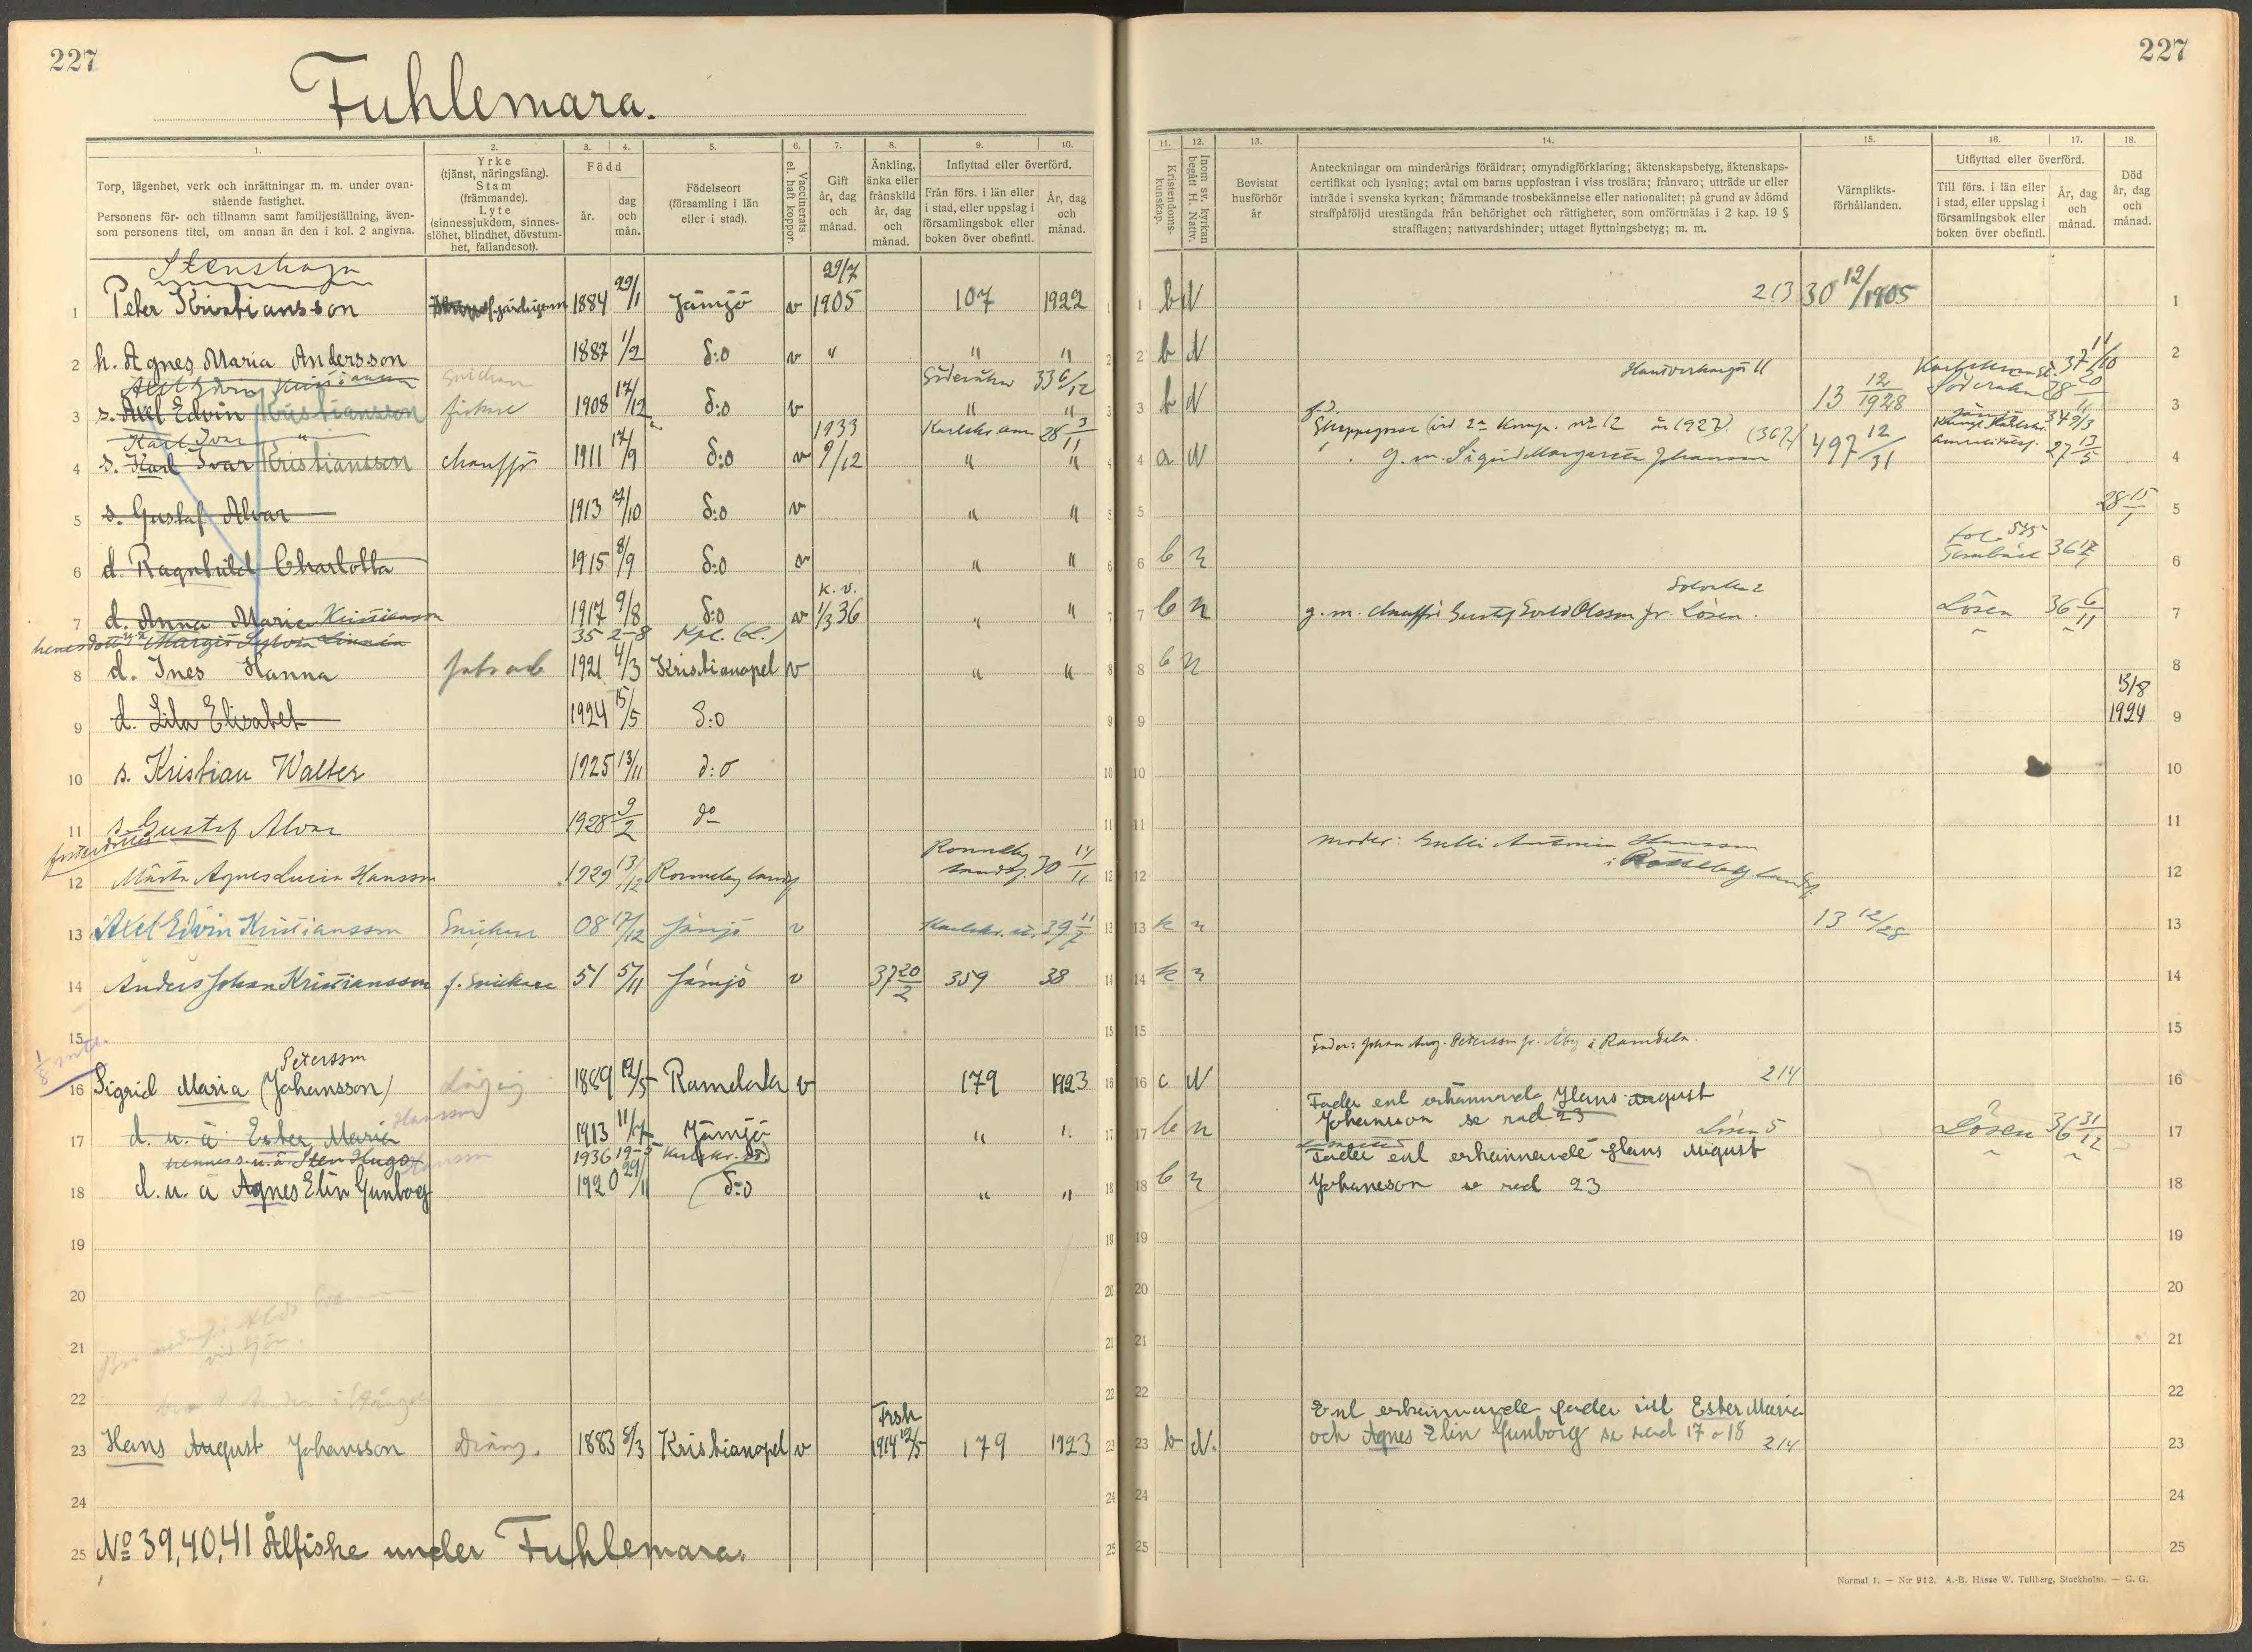 227
227
Fuhlemara.
1.
Torp, lägenhet, verk och inrättningar m. m. under ovan-
stående fastighet.
Personens för- och tillnamn samt familjeställning, även-
som personens titel, om annan än den i kol. 2 angivna.
2.
Yrke
(tjänst, näringsfång).
Stam
(främmande).
Lyte
(sinnessjukdom, sinnes-
slöhet, blindhet, dövstum-
het, fallandesot).
3. 4.
Född
år.
dag
och
mån.
5.
Födelseort
(församling i län
eller i stad).
6.
Vaccinerats
el. haft koppor.
7.
Gift
år, dag
och
månad.
8.
Änkling,
änka eller
frånskild
år, dag
och
månad.
9. 10.
Inflyttad eller överförd.
Från förs. i län eller
i stad, eller uppslag i
församlingsbok eller
boken över obefintl.
År, dag
och
månad.
11.
Kristendoms-
kunskap.
12.
Inom sv. kyrkan
begått H. Nattv.
13.
Bevistat
husförhör
år
14.
Anteckningar om minderårigs föräldrar; omyndigförklaring; äktenskapsbetyg, äktenskaps-
certifikat och lysning; avtal om barns uppfostran i viss troslära; frånvaro; utträde ur eller
inträde i svenska kyrkan; främmande trosbekännelse eller nationalitet; på grund av ådömd
straffpåföljd utestängda från behörighet och rättigheter, som omförmälas i 2 kap. 19 §
strafflagen; nattvardshinder; uttaget flyttningsbetyg; m. m.
15.
Värnplikts-
förhållanden.
16. 17.
Utflyttad eller överförd.
Till förs. i län eller
i stad, eller uppslag i
församlingsbok eller
boken över obefintl.
År, dag
och
månad.
18.
Död
år, dag
och
månad.
Stenshagn
29/7
1 Peter Kristiansson 1884 29/1 Jämjö v 1905 107 1922 1 b N 213 30 12/1905 1
2 h. Agnes Maria Andersson 1887 1/2 d:o v " " " 2 b N 2
Axel Edvin Kristiansson Snickare Söderåkra 33 6/12
3 s. Axel Edvin Kristiansson fiskare 1908 17/12 d:o v " " 3 b N 13 12/1928 Söderåkra 28 3
Karl Ivar " 1933 Karlskr. am 28 3/11
4 s. Karl Ivar Kristiansson chaufför 1911 17/9 d:o v 9/12 " " 4 a N g. m. Sigrid Margareta Johansson 497 12/31 27 13/5 4
5 s. Gustaf Alvar 1913 7/10 d:o v " " 5 28 15/1 5
6 d. Ragnhild Charlotta 1915 8/9 d:o v " " 6 b n 36 6
K. V.
7 d. Anna Maria Kristiansson 1917 9/8 d:o v 1/3 36 " " 7 b n g. m. chaufför Gustaf Olsson fr. Lösen. Lösen 36 6/11 7
35 2-8
8 d. Ines Hanna 1921 4/3 Kristianopel v " " 8 b n 8
9 d. Lila Elisabet 1924 15/5 d:o 9 13/8 1924 9
10 s. Kristian Walter 1925 13/11 d:o 10 10
11 s. Gustaf Alvar 1928 9/2 do 11 11
fosterdotter Ronneby moder: Hansson
12 Märta Agnes Lucia Hansson 1929 13/12 Ronneby landsf landsf. 30 14/11 12 i Ronneby landsf. 12
13 Axel Edvin Kristiansson Snickare 08 17/12 Jämjö v 39 11/7 13 k n 13 12/28 13
14 Anders Johan Kristiansson f. Snickare 51 5/11 Jämjö v 37 20/2 359 38 14 k n 14
15 Fader: Johan Aug. Petersson fr. i Ramdala. 15
Petersson
16 Sigrid Maria (Johansson) 1889 12/5 Ramdala v 179 1923 16 c N 214 16
Hansson Fader enl erkännande Hans August
17 d. u. ä Ester Maria 1913 11/7 Jämjö " " 17 b n Johansson se rad 23 Lösen 5 Lösen 36 31/12 17
hennes s. u. ä. Sten Hugo Hansson 1936 19-5 Fader enl erkännande Hans August
18 d. u. ä Agnes Elin Gunborg 1920 29/11 d:o " " 18 b n Johansson se rad 23 18
19 19
20 20
21 21
22 22
Frsk Enl erkännande fader till Ester Maria
23 Hans August Johansson Dräng. 1883 5/3 Kristianopel v 1914 12/5 179 1923 23 b N. och Agnes Elin Gunborg se rad 17 o 18 214 23
24 24
25 No 39,40,41 Ålfiske under Fuhlemara. 25
Normal 1. — N:r 912. A.-B. Hasse W. Tullberg, Stockholm. — G. G.